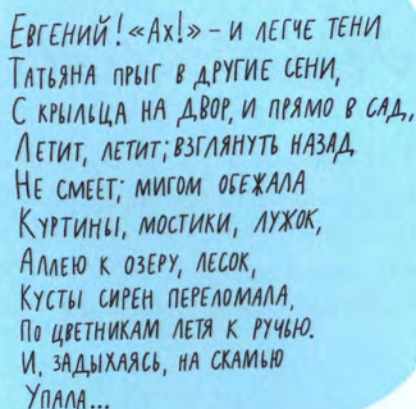 Евгений! «Ах!» – и легче тени
Татьяна прыг в другие сени,
С крыльца на двор, и прямо в сад,
Летит, летит; взглянуть назад
Не смеет; мигом обежала
Куртины, мостики, лужок,
Аллею к озеру, лесок,
Кусты сирен переломала,
По цветникам летя к ручью.
И, задыхаясь, на скамью
Упала...